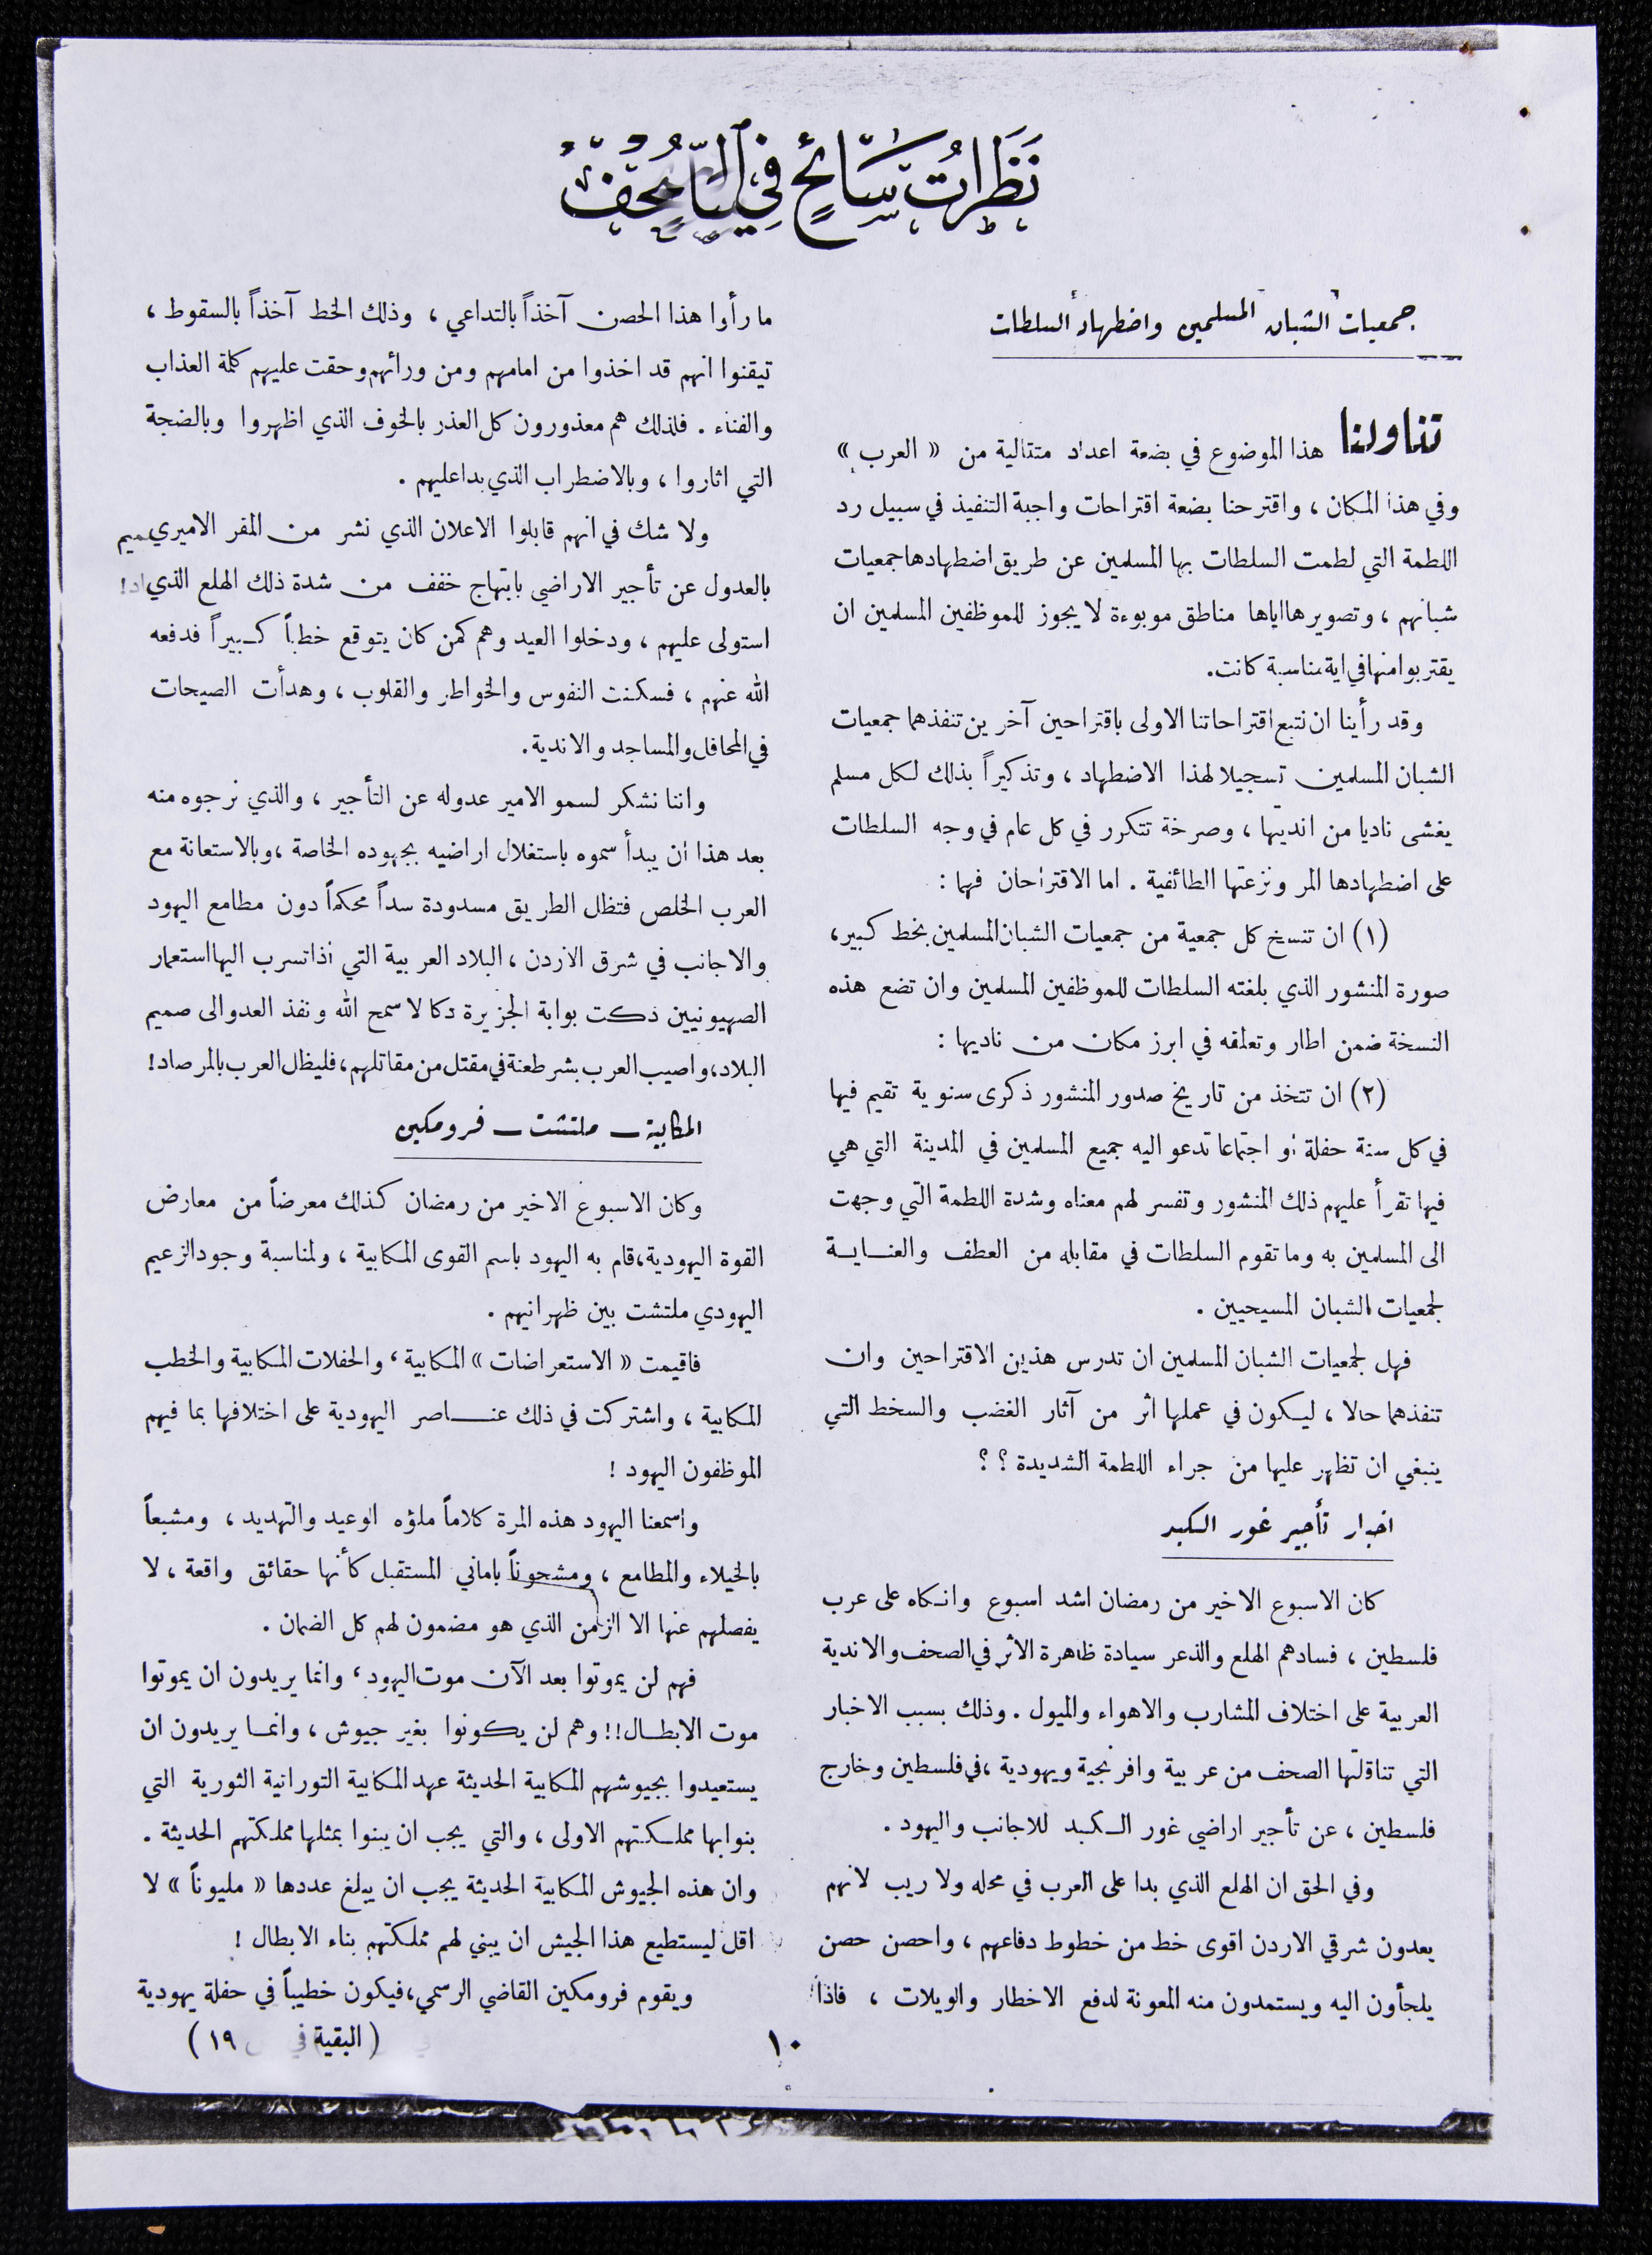 نظرات سائح في
جمعيات الشبان المسلمين واضطهاد السلطات
تناولنا هذا الموضوع في بضعة اعداد متتالية من « العرب »
وفي هذا المكان ، واقترحنا بضعة اقتراحات واجبة التنفيذ في سبيل رد
اللطمة التي لطمت السلطات بها المسلمين عن طريق اضطهادها جمعيات
شبانهم ، وتصويرها اياها مناطق موبوءة لا يجوز للموظفين المسلمين ان
يقتربوا منها في اية مناسبة كانت .
وقد رأينا ان نتبع اقتراحاتنا الاولى باقتراحين آخرين تنفذهما جمعيات
الشبان المسلمين تسجيلا لهذا الاضطهاد ، وتذكيراً بذلك لكل مسلم
يغشى ناديا من انديتها ، وصرخة تتكرر في كل عام في وجه السلطات
على اضطهادها المر ونزعتها الطائفية . اما الاقتراحان فهما :
(١) ان تنسخ كل جمعية من جمعيات الشبان المسلمين بخط كبير ،
صورة المنشور الذي بلغته السلطات للموظفين المسلمين وان تضع هذه
النسخة ضمن اطار وتعلقه في ابرز مكان من ناديها :
(٢) ان تتخذ من تاريخ صدور المنشور ذكرى سنوية تقيم فيها
في كل سنة حفلة او اجتماعا تدعو اليه جميع المسلمين في المدينة التي هي
فيها تقرأ عليهم ذلك المنشور وتفسر لهم معناه وشدة اللطمة التي وجهت
الى المسلمين به وما تقوم السلطات في مقابله من العطف والعنايـة
لجمعيات الشبان المسيحيين .
فهل لجمعيات الشبان المسلمين ان تدرس هذين الاقتراحين وان
تنفذهما حالا ، ليكون في عملها اثر من آثار الغضب والسخط التي
ينبغي ان تظهر عليها من جراء اللطمة الشديدة ؟ ؟
اخبار تأجير غور الكبد
كان الاسبوع الاخير من رمضان اشد اسبوع وانكاه على عرب
فلسطين ، فسادهم الهلع والذعر سيادة ظاهرة الاثر في الصحف والاندية
العربية على اختلاف المشارب والاهواء والميول . وذلك بسبب الاخبار
التي تناقلتها الصحف من عربية وافرنجية ويهودية ، في فلسطين وخارج
فلسطين ، عن تأجير اراضي غور الكبد للاجانب واليهود .
وفي الحق ان الهلع الذي بدا على العرب في محله ولا ريب لانهم
يعدون شرقي الاردن اقوى خط من خطوط دفاعهم ، واحصن حصن
يلجأون اليه ويستمدون منه المعونة لدفع الاخطار والويلات ، فاذا
ما رأوا هذا الحصن آخذاً بالتداعي ، وذلك الخط آخذاً بالسقوط ،
تيقنوا انهم قد اخذوا من امامهم ومن ورائهم وحقت عليهم كلمة العذاب
والفناء . فلذلك هم معذورون كل العذر بالخوف الذي اظهروا وبالضجة
التي اثاروا ، وبالاضطراب الذي بدا عليهم .
ولا شك في انهم قابلوا الاعلان الذي نشر من المقر الاميري
بالعدول عن تأجير الاراضي بابتهاج خفف من شدة ذلك الهلع الذي
استولى عليهم ، ودخلوا العيد وهم كمن كان يتوقع خطباً كبيراً فدفعه
الله عنهم ، فسكنت النفوس والخواطر والقلوب ، وهدأت الصيحات
في المحافل والمساجد والاندية .
واننا نشكر لسمو الامير عدوله عن التأجير ، والذي نرجوه منه
بعد هذا ان يبدأ سموه باستغلال اراضيه بجهوده الخاصة ، وبالاستعانة مع
العرب الخلص فتظل الطريق مسدودة سداً محكماً دون مطامع اليهود
والاجانب في شرق الاردن ، البلاد العربية التي اذا تسرب اليها استعمار
الصهيونيين دكت بوابة الجزيرة دكا لا سمح الله ونفذ العدو الى صميم
البلاد ، واصيب العرب بشر طعنة في مقتل من مقاتلهم ، فليظل العرب بالمرصاد !
المكابية ــ ملتشت ــ فرومكين
وكان الاسبوع الاخير من رمضان كذلك معرضاً من معارض
القوة اليهودية ، قام به اليهود باسم القوى المكابية ، ولمناسبة وجود الزعيم
اليهودي ملتشت بين ظهرانيهم .
فاقيمت « الاستعراضات » المكابية ، والحفلات المكابية والخطب
المكابية ، واشتركت في ذلك عنـاصر اليهودية على اختلافها بما فيهم
الموظفون اليهود !
واسمعنا اليهود هذه المرة كلاماً ملؤه الوعيد والتهديد ، ومشبعاً
بالخيلاء والمطامع ، ومشحوناً باماني المستقبل كأنها حقائق واقعة ، لا
يفصلهم عنها الا الزمن الذي هو مضمون لهم كل الضمان .
فهم لن يموتوا بعد الآن موت اليهود ، وانما يريدون ان يموتوا
موت الابطـال !! وهم لن يكونوا بغير جيوش ، وانمـا يريدون ان
يستعيدوا بجيوشهم المكابية الحديثة عهد المكابية التورانية الثورية التي
بنوا بها مملكتهم الاولى ، والتي يجب ان يبنوا بمثلها مملكتهم الحديثة .
وان هذه الجيوش المكابية الحديثة يجب ان يبلغ عددها « مليوناً » لا
اقل ليستطيع هذا الجيش ان يبني لهم مملكتهم بناء الابطال !
ويقوم فرومكين القاضي الرسمي ، فيكون خطيباً في حفلة يهودية
( البقية في ١٩ )
١٠